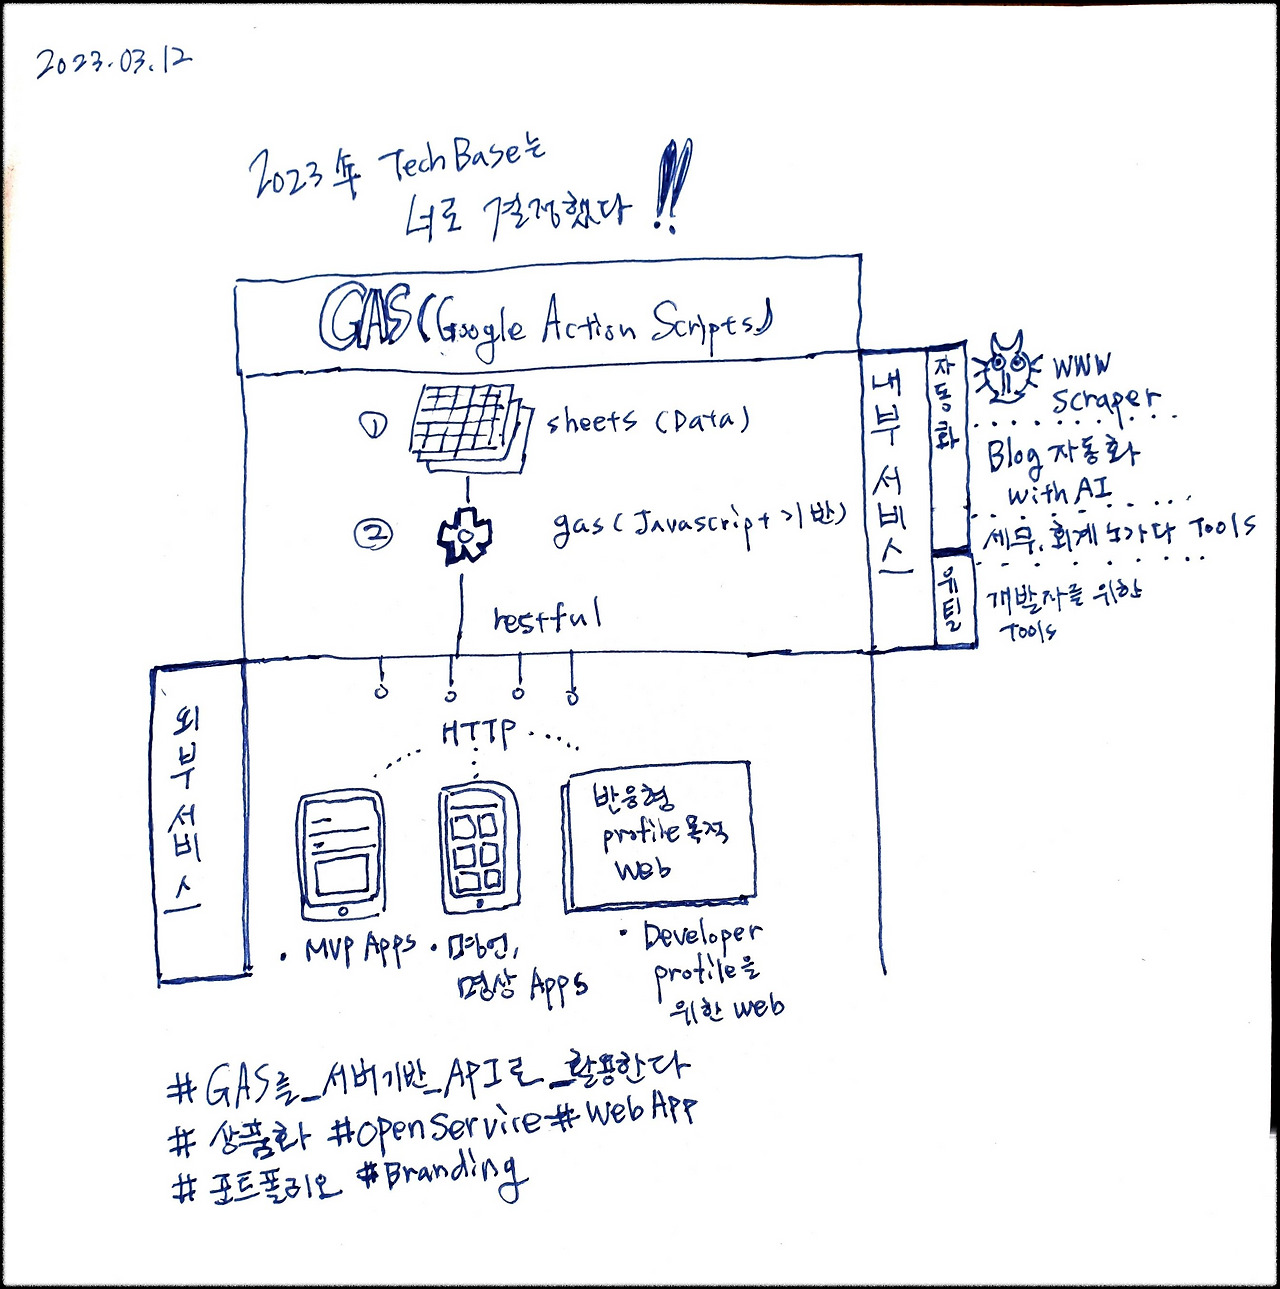 2023.03.12
2023年 TechBase는
너로 결정했다 !!
GAS (Google Action Scripts)
① sheets (Data)
② gas (Javascript 기반)
restful
내부 서비스
자동화
www
scraper
Blog 자동화
with AI
세무, 회계 노가다 Tools
유틸
개발자를 위한
Tools
외부 서비스
HTTP
반응형
profile 목적
web
• MVP Apps
• 명언,
명상 Apps
• Developer
profile을
위한 web
#GAS를_서버기반_API로_활용한다
#상품화 #openService #WebApp
#포트폴리오 #Branding